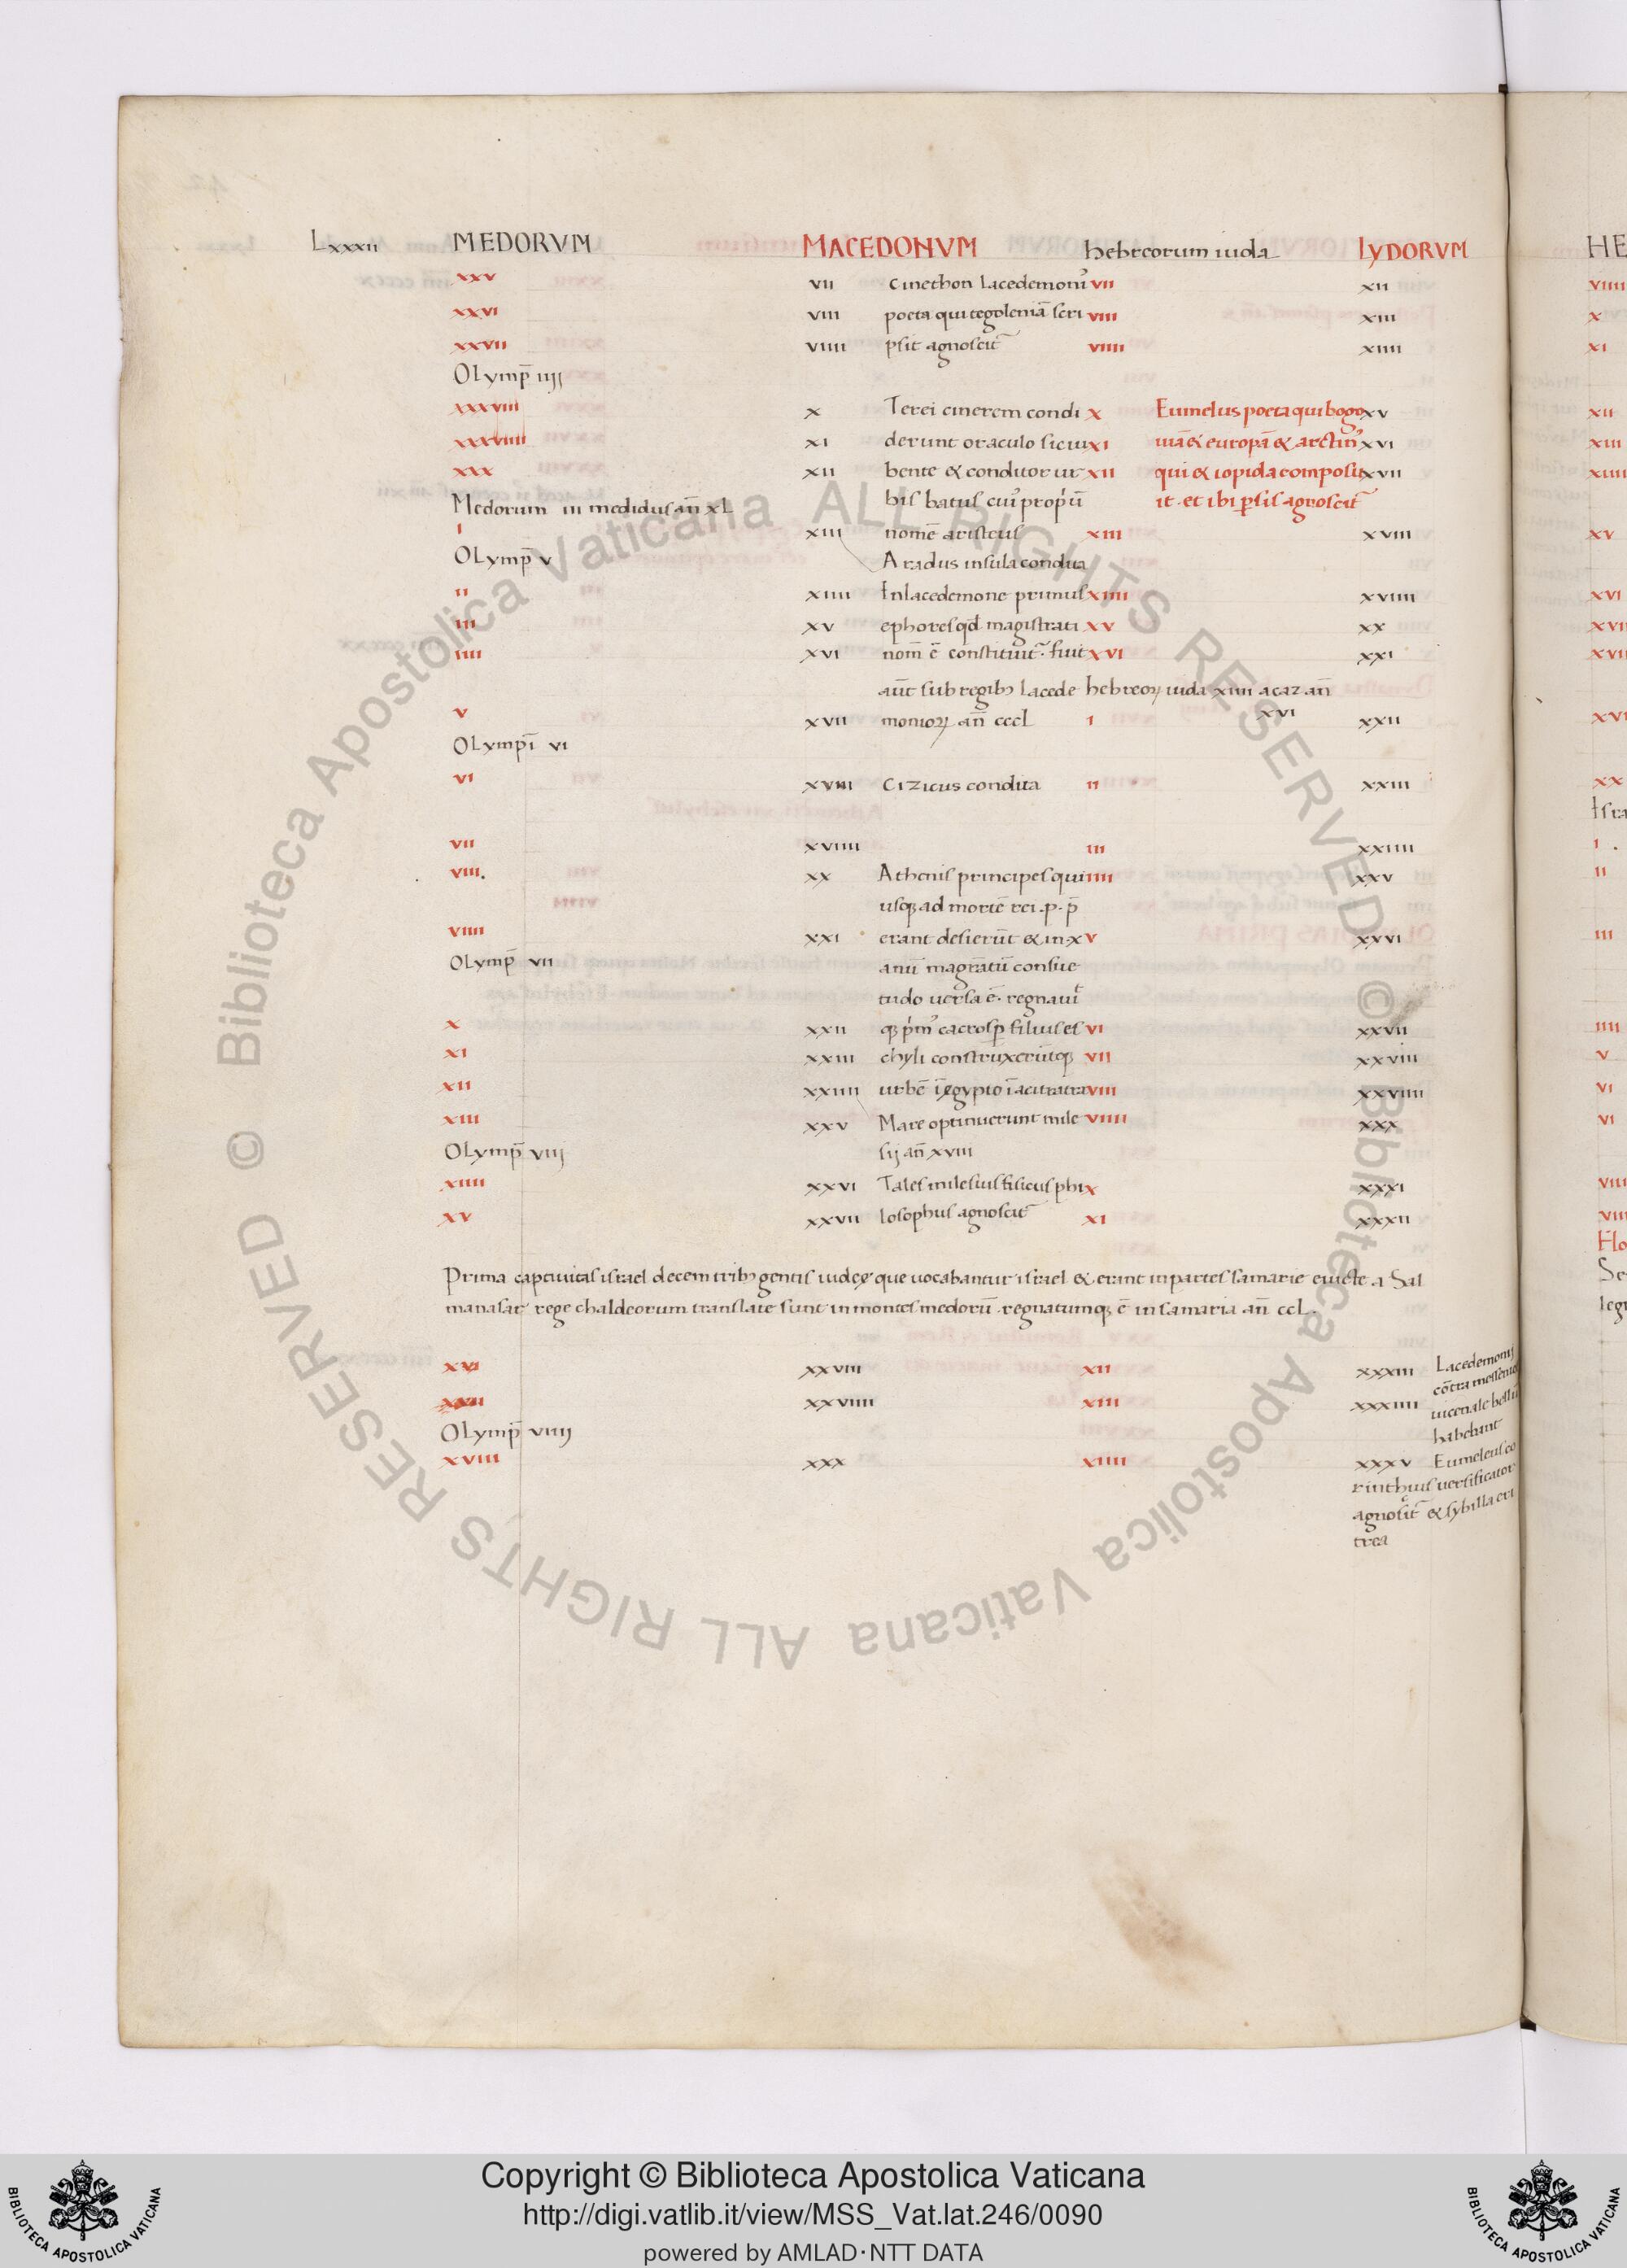 Lxxxii MEDORVM MACEDONVM hebreorum iuda LYDORVM HE
xxv vii cinethon lacedemoni᾿ vii xii viiii
xxvi viii poeta qui tegoleniā scri viii xiii x
xxvii viiii psit agnoscit̄ viiii xiiii xi
OLymp̄ iiij
xxxviii x Terei cinerem condi x Eumelus poeta qui bogo xv xii
xxxviiii xi derunt oraculo siciu xi niā & europā & arctin᾿ xvi xiii
xxx xii bente & conditor ur xii qui & iopida composu xvii xiiii
Medorum iii medidus an̄ xL bis batus cui᾿ propriū it . et ibi p̱sis agnoscit̄
i xiii nomē aristeus xiii xviii xv
OLymp̄ v Aradus insula condita
ii xiiii In lacedemone primus xiiii xviiii xvi
iii xv ephores qd̄ magistrati xv xx xvii
iiii xvi nom̄ ē constituit̄ . fuit xvi xxi
aūt sub regibꝫ lacede hebreoꝝ iuda xiiii acaz an̄ xvi
v xvii monioꝝ an̄ cccl i xxii
OLympī vi
vi xviii Cizicus condita ii xxiii xx
Isra
vii xviiii iii xxiiii i .
viii. xx Athenis principes qui iiii xxv ii
usqꝫ ad mortē rei . p . p̄
viiii xxi erant desierūt & in x v xxvi iii
OLymp̄ vii anū magratū consue
tudo uersa ē . regnauit
x xxii qꝫ prim᾿ cacrosp̱ filius es vi xxvii iiii
xi xxiii chyli construxerūtqꝫ vii xxviii v
xii xxiiii urbē ī egypto ī acitratra viii xxviiii vi
xiii xxv Mare optinuerunt mile viiii xxx vi
OLymp̄ viij sij an̄ xviii
xiiii xxvi Tales milesius fisicus phi x xxxi viii
xv xxvii losophus agnoscit̄ xi xxxii viii
Prima captiuitas israel decem tribꝫ gentis iudeę que uocabantur israel & erant in partes samarie euicte a Sal
manasar rege chaldeorum translate sunt in montes medorū . regnatumqꝫ ē in samaria an̄ ccL .
xvi xxviii xii xxxiii Lacedemonij
cōtra messenios
xvii xxviiii xiii xxxiiii uicenale bellū
OLymp̄ viiij habebant
xviii xxx xiiii xxxv Eumeleus co
rinthius uersificator
agnoscit̄ & sybilla eri
trea
Copyright © Biblioteca Apostolica Vaticana
http://digi.vatlib.it/view/MSS_Vat.lat.246/0090
powered by AMLAD·NTT DATA
© Biblioteca Apostolica Vaticana ALL RIGHTS RESERVED © Biblioteca Apostolica Vaticana ALL RIGHTS RESERVED
BIBLIOTECA APOSTOLICA VATICANA
BIBLIOTECA APOSTOLICA VATICANA